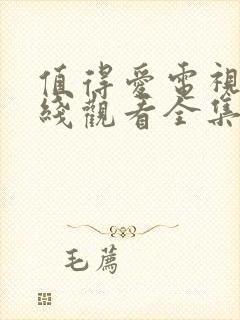 值得愛電視
綫觀看全集
毛薦